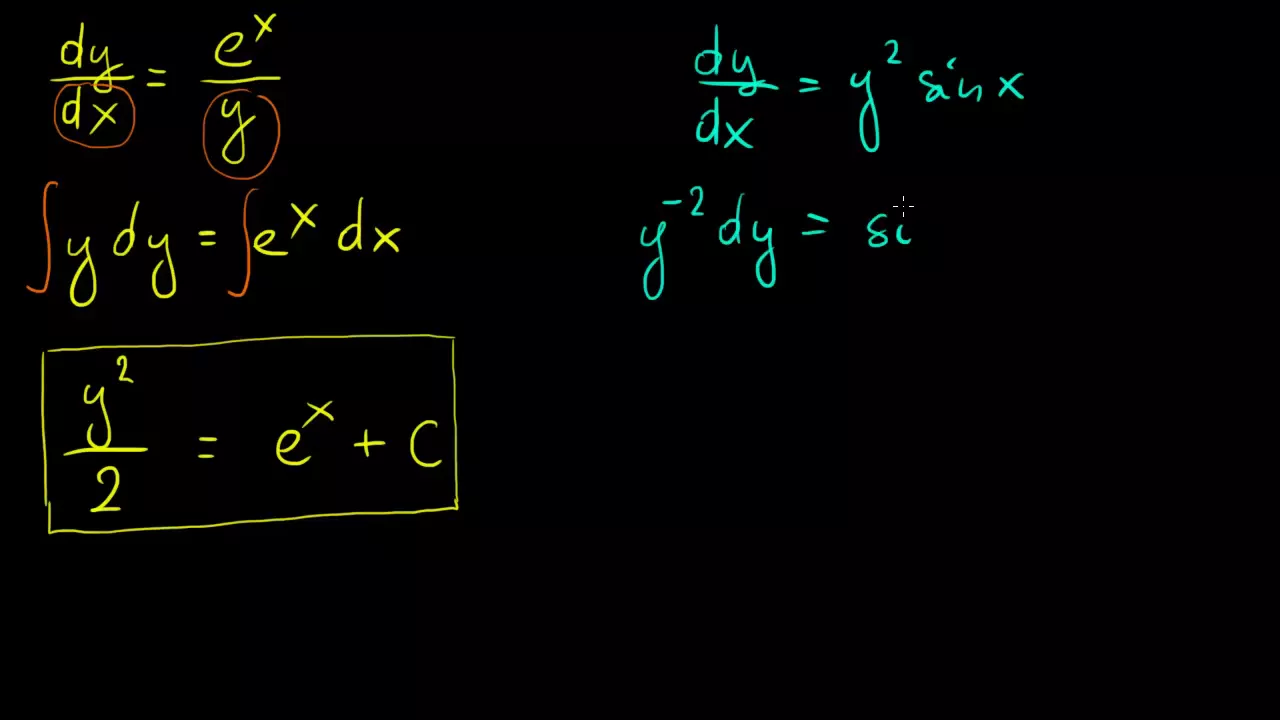 dy/dx = e^x/y
∫ y dy = ∫ e^x dx
y²/2 = e^x + C
dy/dx = y² sin x
y⁻² dy = si